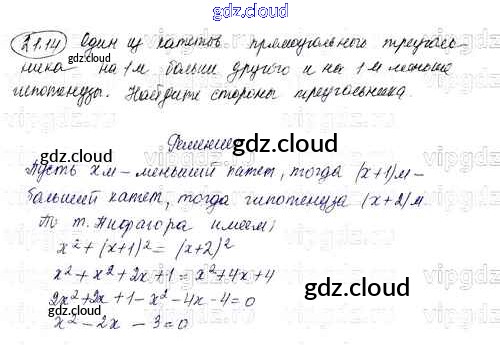 gdz.cloud
21.14 Один из катетов прямоугольного треуголь-
ника на 1 м больше другого и на 1 м меньше
гипотенузы. Найдите стороны треугольника.
gdz.cloud gdz.cloud
Решение
gdz.cloud
Пусть x м - меньший катет, тогда (x+1) м -
больший катет, тогда гипотенуза (x+2) м.
По т. Пифагора имеем:
gdz.cloud
x² + (x+1)² = (x+2)²
x² + x² + 2x + 1 = x² + 4x + 4
gdz.cloud
2x² + 2x + 1 - x² - 4x - 4 = 0
gdz.cloud
x² - 2x - 3 = 0